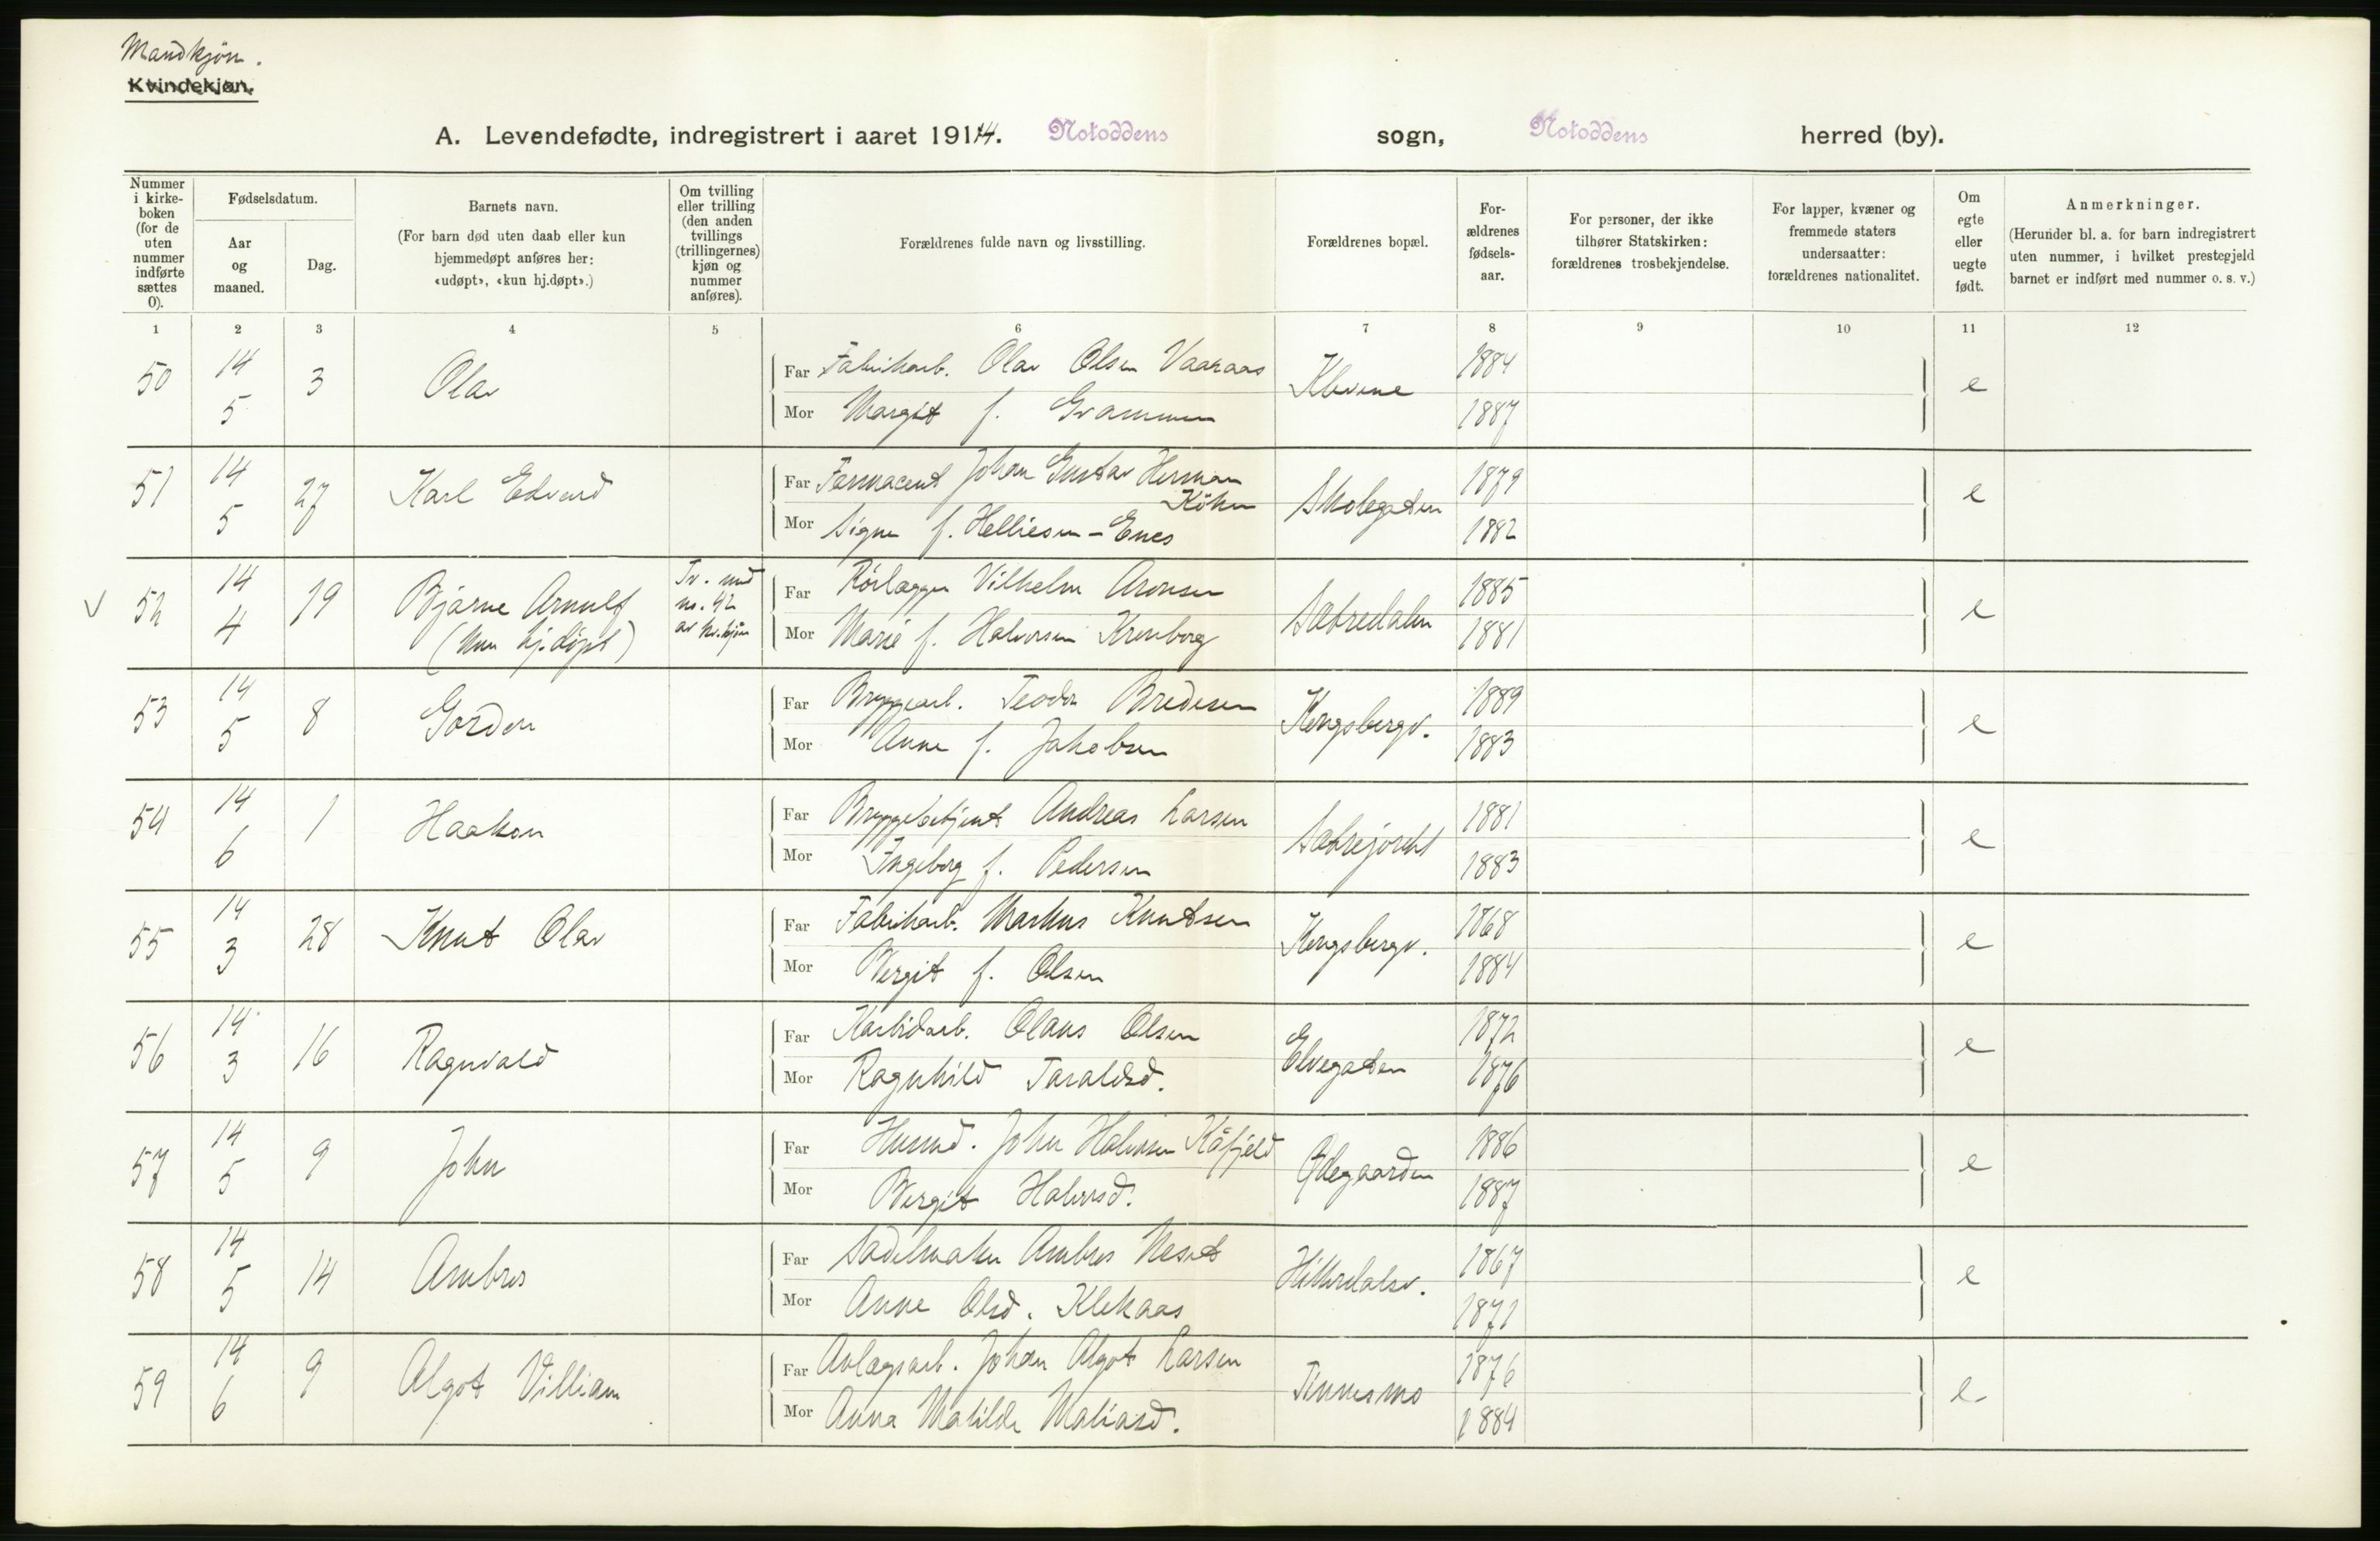 Mandkjøn.
Kvindekjøn.
A. Levendefødte, indregistrert i aaret 1914. Notoddens sogn, Notoddens herred (by).
Nummer i kirkeboken (for de uten nummer indførte sættes 0).
Fødselsdatum.
Aar og maaned.
Dag.
Barnets navn.
(For barn død uten daab eller kun hjemmedøpt anføres her: «udøpt», «kun hj.døpt».)
Om tvilling eller trilling (den anden tvillings (trillingernes) kjøn og nummer anføres).
Forældrenes fulde navn og livsstilling.
Forældrenes bopæl.
Forældrenes fødselsaar.
For personer, der ikke tilhører Statskirken: forældrenes trosbekjendelse.
For lapper, kvæner og fremmede staters undersaatter: forældrenes nationalitet.
Om egte eller uegte født.
Anmerkninger.
(Herunder bl. a. for barn indregistrert uten nummer, i hvilket prestegjeld barnet er indført med nummer o. s. v.)
1 2 3 4 5 6 7 8 9 10 11 12
50 14 5 3 Olav
Far Fabrikarb. Olav Olsen Vaaraas 1884
Mor Margit f. Grammen 1887
Klevene e
51 14 5 27 Karl Edvard
Far Farmaceut Johan Gustav Herman Köhn 1879
Mor Signe f. Helliesen-Enes 1882
Skolegaten e
V 52 14 4 19 Bjarne Arnulf
(kun hj.døpt)
Tv. med
nr. 42
av kv.kjøn
Far Rørlægger Vilhelm Aronsen 1885
Mor Marie f. Halvorsen Kreuborg 1881
Sætredalen e
53 14 5 8 Gordon
Far Bryggearb. Teodor Bredesen 1889
Mor Anne f. Jakobsen 1883
Kongsbergv. e
54 14 6 1 Haakon
Far Bryggebetjent Andreas Larsen 1881
Mor Ingeborg f. Pedersen 1883
Sætrejordet e
55 14 3 28 Knut Olav
Far Fabrikarb. Markus Knutsen 1868
Mor Bergit f. Olsen 1884
Kongsbergv. e
56 14 3 16 Ragnvald
Far Karbidarb. Olaus Olsen 1872
Mor Ragnhild Taraldsd. 1876
Elvegaten e
57 14 5 9 John
Far Husmd. John Halvorsen Kåfjeld 1886
Mor Bergit Halvorsd. 1887
Ødegaarden e
58 14 5 14 Ambros
Far Sadelmaker Ambros Neset 1867
Mor Anne Olsd. Klekaas 1871
Hitterdalsv. e
59 14 6 9 Algot Villiam
Far Anlægsarb. Johan Algot Larsen 1876
Mor Anna Matilde Matiasd. 1884
Tinnesmo e